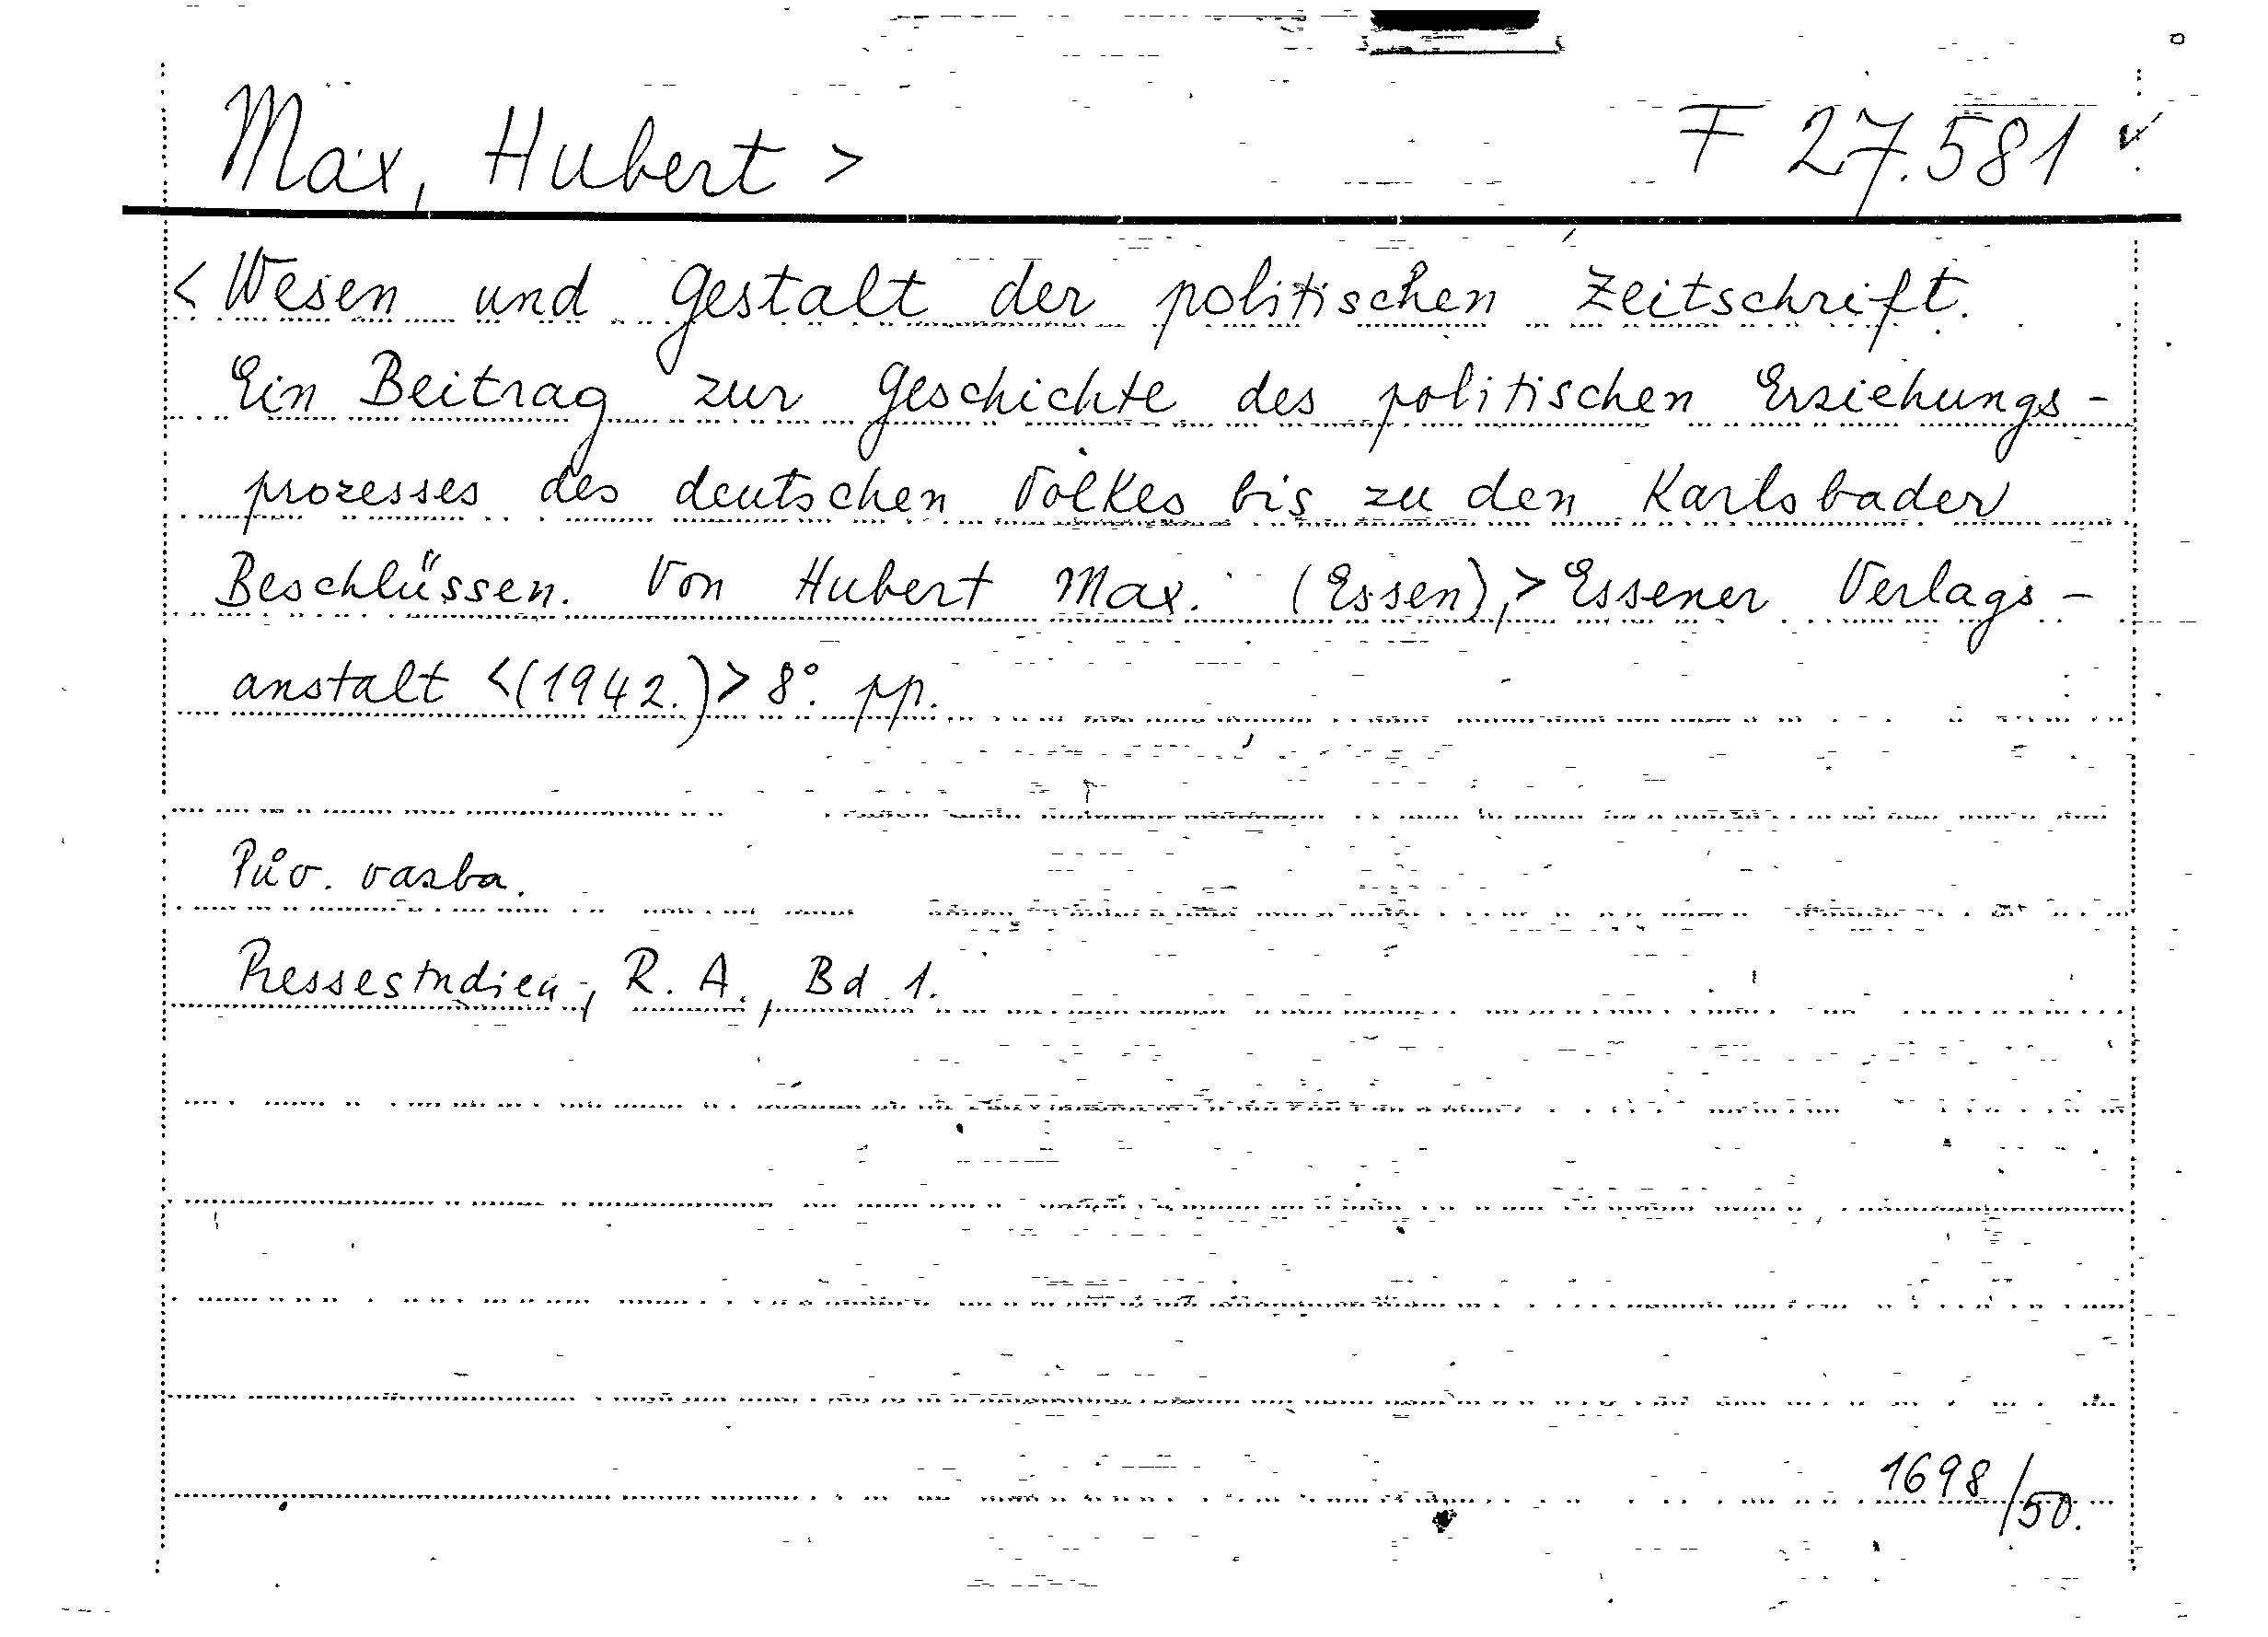 Max, Hubert > F 27.581 ✓
< Wesen und Gestalt der politischen Zeitschrift.
Ein Beitrag zur Geschichte des politischen Erziehungs-
prozesses des deutschen Volkes bis zu den Karlsbader
Beschlüssen. Von Hubert Max. (Essen),> Essener Verlags-
anstalt <(1942.)> 8°. pp.
Pův. vazba.
Pressestudien, R. A., Bd 1.
1698/50.